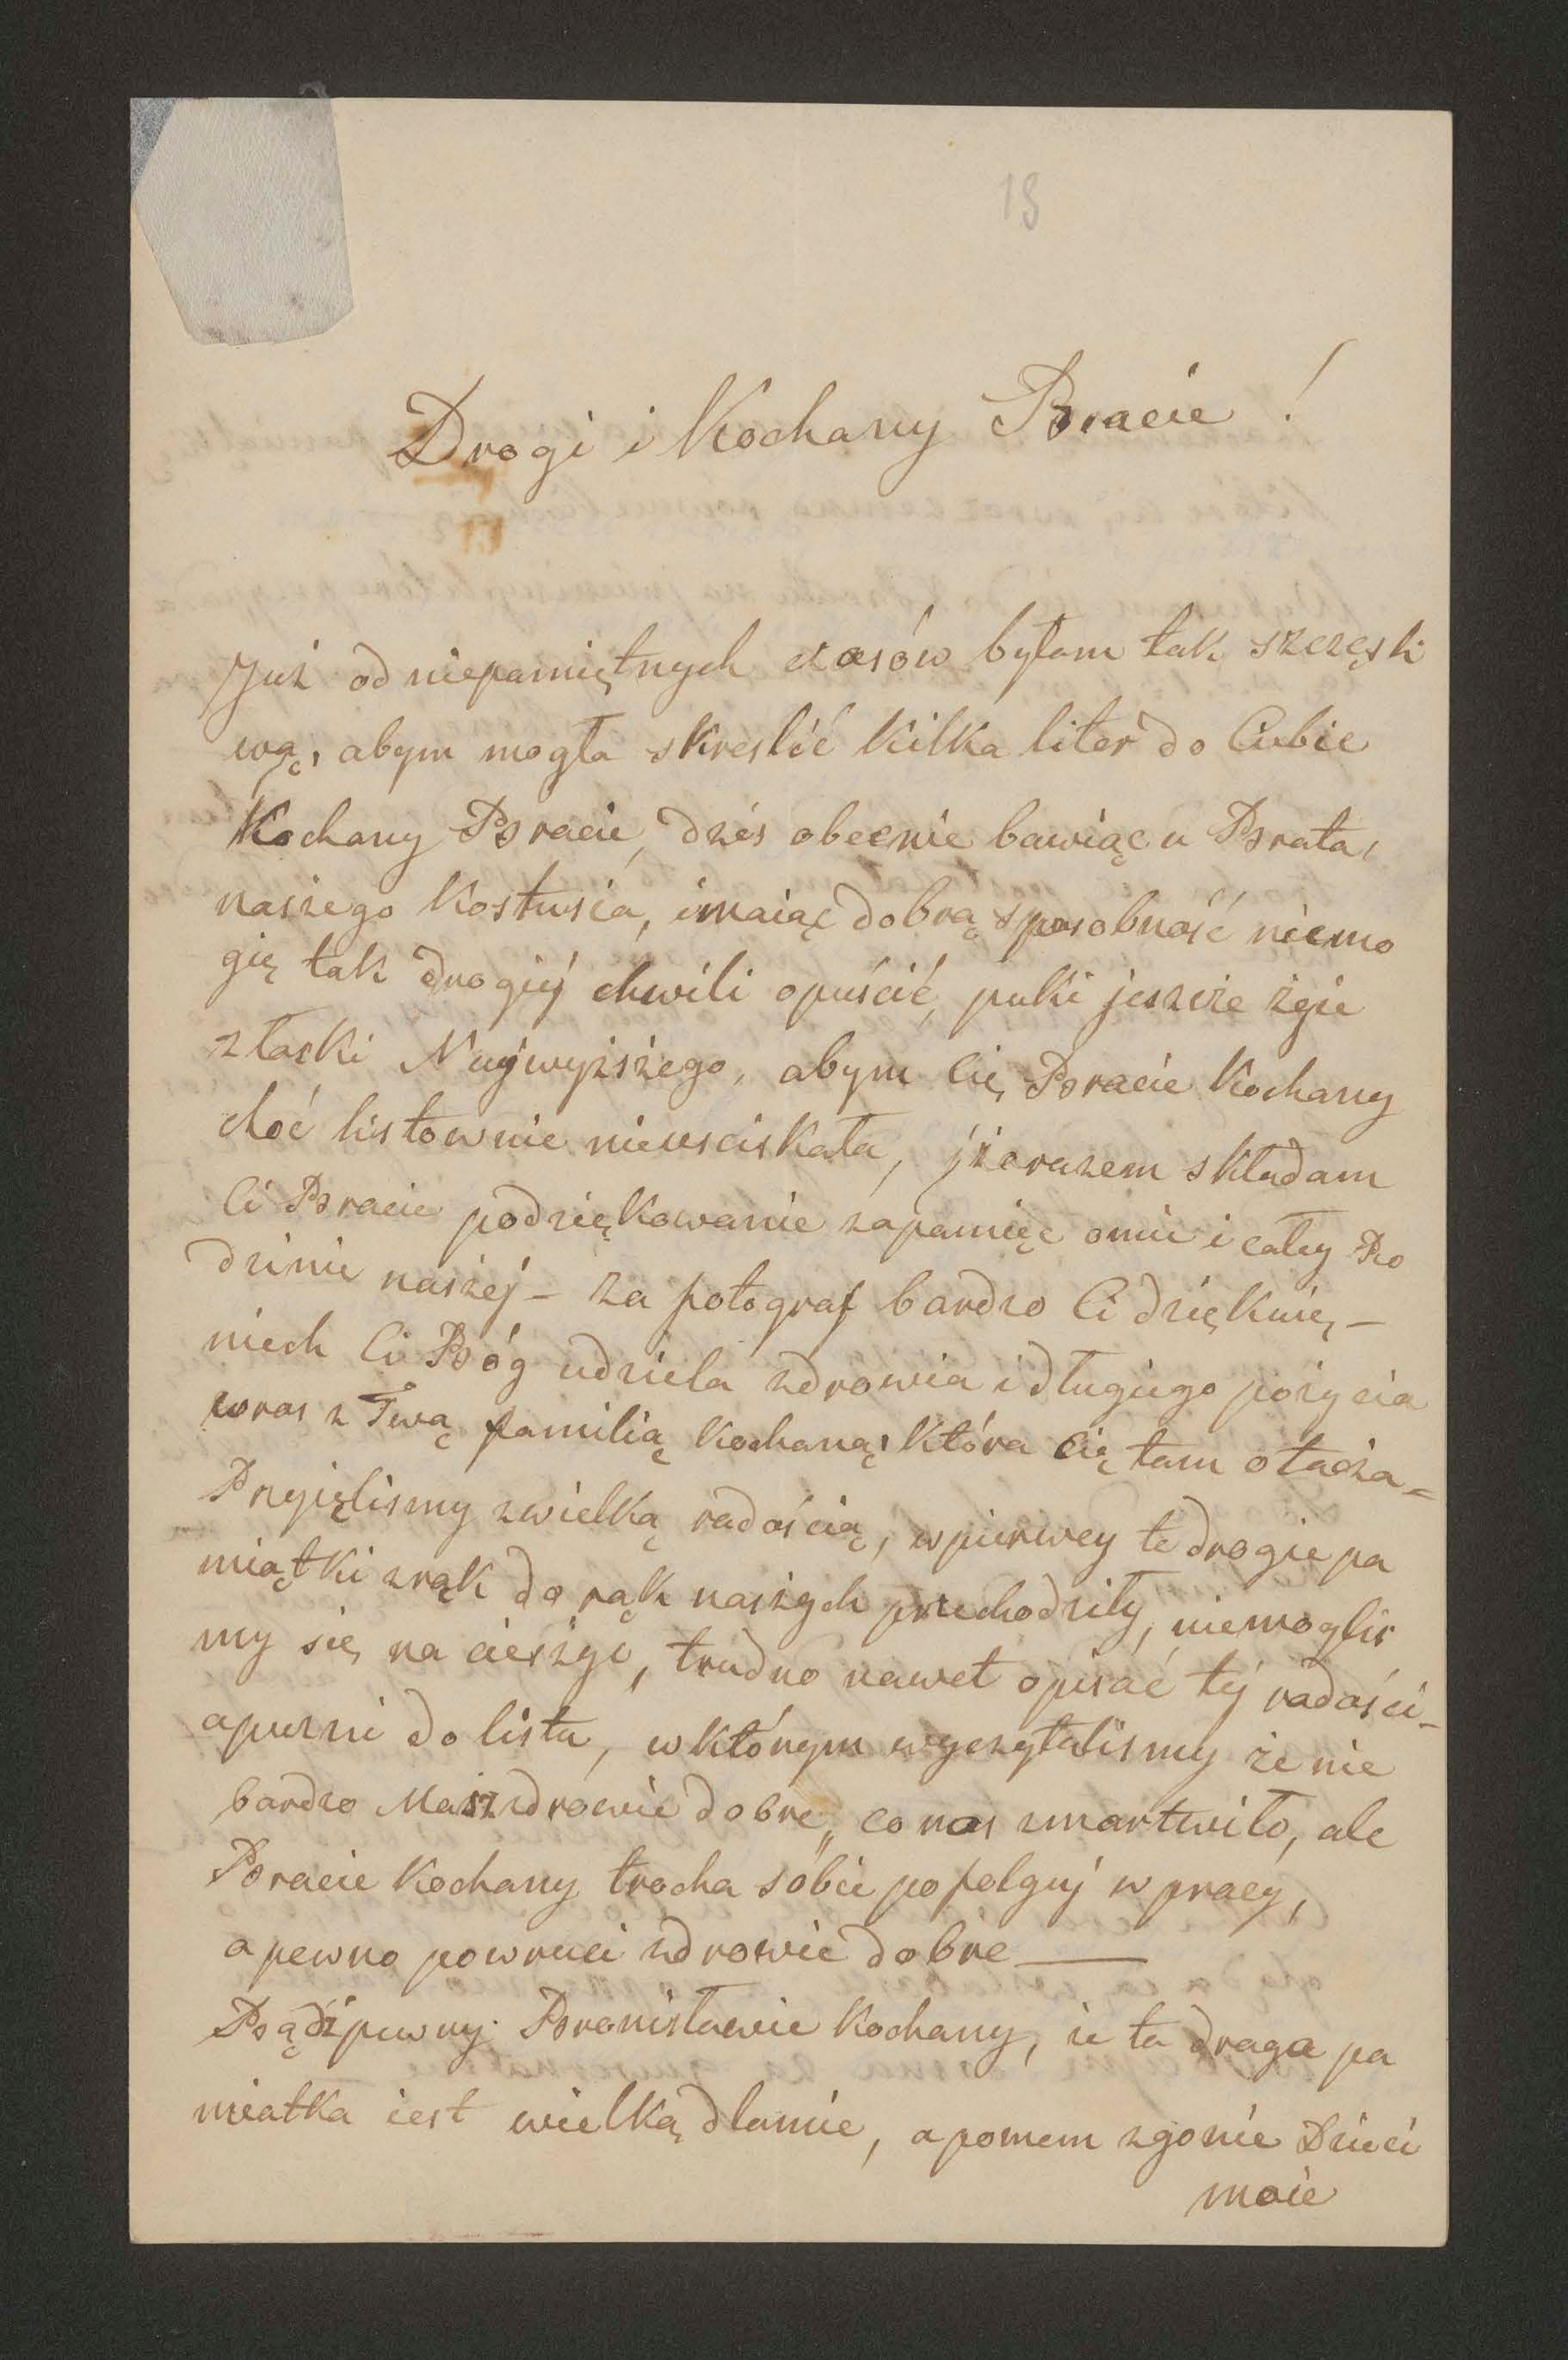 18
Drogi i Kochany Bracie !
Już od niepamiętnych czasów byłam tak szczęśli
wą, abym mogła skreslić kilka liter do Ciebie
Kochany Bracie, dziś obecnie bawiąc u Brata,
naszego Kostusia, i maiąc dobrą sposobność niemo
gię tak drogiéj chwili opuścić, puki jeszcze żyie
z łaski Najwyższego, abym Cię Bracie Kochany
choć listownie nieusciskała, jżarazem składam
Ci Bracie podziękowanie zapamięc omie i całey Ro
dzinie naszéj - za fotograf bardzo Ci dziękuię -
niech Ci Bóg udziela zdrowia i długiego pożycia
wraz z Twą familią kochaną, która Cię tam otacza -
Pryięlismy zwielką radością, wpierwey te drogie pa
miątki zrąk do rąk naszych przechodziły, niemoglis
my się na cieszyć, trudno nawet opisać téj radości -
apuzni do listu, wktórym wyczytalismy że nie
bardzo Masz zdrowie dobre, co nas zmartwiło, ale
Bracie Kochany trocha sobie pofolguj w pracy,
a pewno powruci zdrowie dobre —
Bądź pewny Bronisławie Kochany, że ta droga pa
miatka iest wielką dlamie, apomem zgonie Dzieci
moie